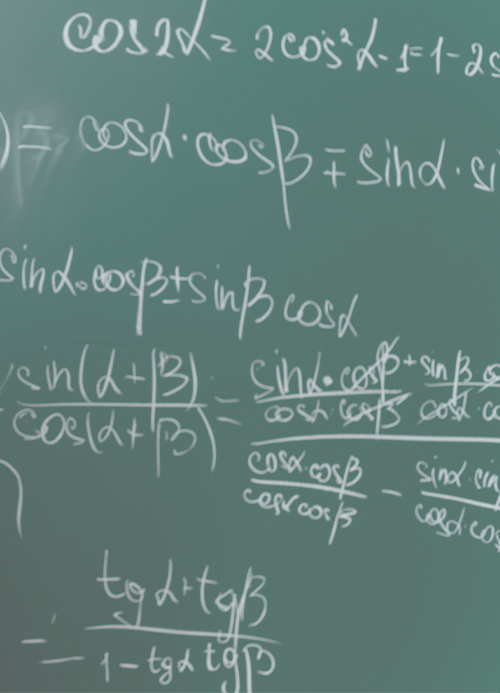 cos2α = 2cos²α-1=1-2s
) = cosα·cosβ ∓ sinα·si
sinα·cosβ ± sinβ cosα
sin(α+β) / cos(α+β) = (sinα·cosβ / cosα·cosβ + sinβ·co / cosα·co) / (cosα·cosβ / cosα cosβ - sinα·sin / cosα·cos
= (tgα+tgβ) / (1-tgα tgβ)